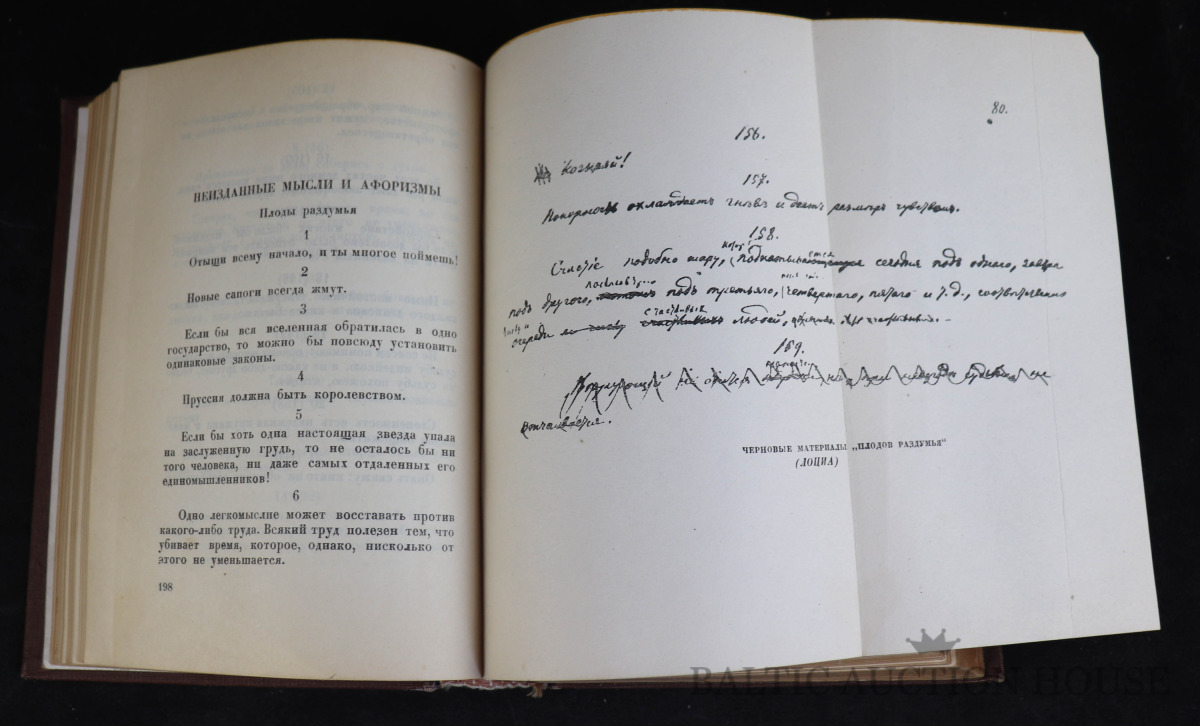 НЕИЗДАННЫЕ МЫСЛИ И АФОРИЗМЫ
Плоды раздумья
1
Отыщи всему начало, и ты многое поймешь!
2
Новые сапоги всегда жмут.
3
Если бы вся вселенная обратилась в одно
государство, то можно бы повсюду установить
одинаковые законы.
4
Пруссия должна быть королевством.
5
Если бы хоть одна настоящая звезда упала
на заслуженную грудь, то не осталось бы ни
того человека, ни даже самых отдаленных его
единомышленников!
6
Одно легкомыслие может восставать против
какого-либо труда. Всякий труд полезен тем, что
убивает время, которое, однако, нисколько от
этого не уменьшается.
198
80.
156.
157.
охлаждаетъ гнѣвъ и даетъ размѣръ чувствамъ.
158.
Счастіе подобно шару, сегодня подъ одного, завтра
подъ другого, подъ третьяго, четвертаго, пятаго и т.д., соотвѣтственно
счастливыхъ
очереди людей,
159.
ЧЕРНОВЫЕ МАТЕРИАЛЫ „ПЛОДОВ РАЗДУМЬЯ"
(ЛОЦИА)
BALTIC AUCTION HOUSE